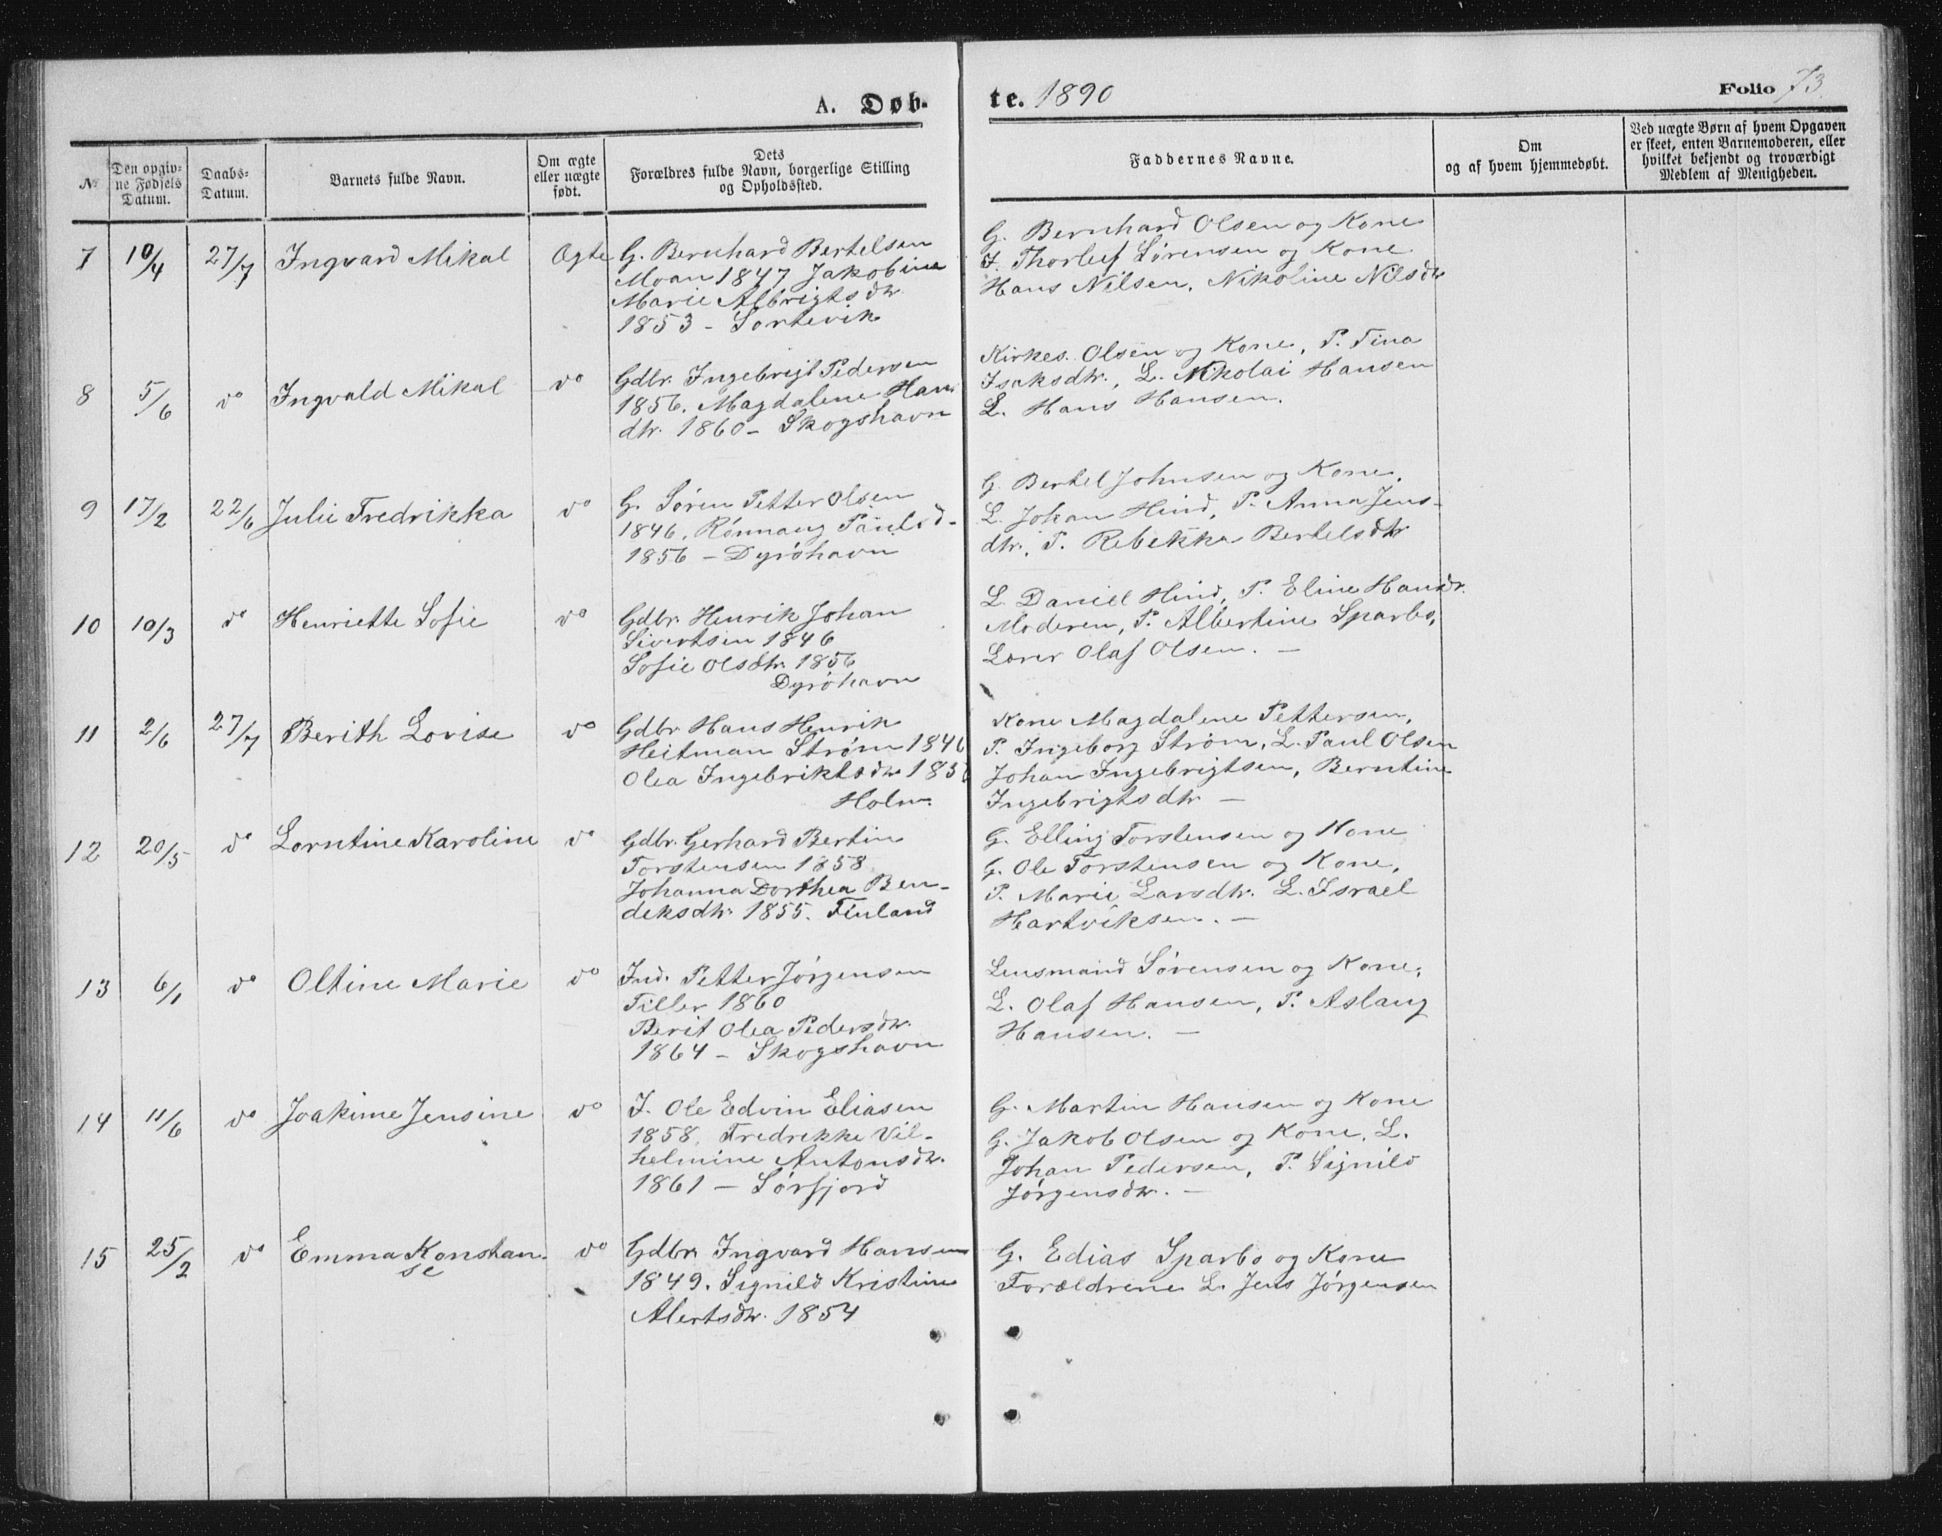 A. Døb-
te. 1890
Folio 73
№
Den opgiv-
ne Fødsels
Datum.
Daabs-
Datum.
Barnets fulde Navn.
Om ægte
eller uægte
født.
Dets
Forældres fulde Navn, borgerlige Stilling
og Opholdssted.
Faddernes Navne.
Om
og af hvem hjemmedøbt.
Ved uægte Børn af hvem Opgaven
er skeet, enten Barnemoderen, eller
hvilket bekjendt og troværdigt
Medlem af Menigheden.
7 10/4 27/7 Ingvard Mikal Ægte
G. Bernhard Bertelsen
Moan 1847 Jakobine
Marie Albrigtsdtr
1853 - Sortevik
G. Bernhard Olsen og Kone
I. Thorleif Sørensen og Kone
Hans Nilsen, Nikoline Nilsdtr
8 5/6 do Ingvald Mikal do
Gdbr. Ingebrigt Pedersen
1856. Magdalene Hans
dtr. 1860 - Skogshavn
Kirkes. Olsen og Kone, P. Tina
Isaksdtr., L. Nikolai Hansen
L. Hans Hansen.
9 17/2 22/6 Julie Fredrikka do
G. Søren Petter Olsen
1846, Rønnaug Paulsd-
1856 - Dyrøhavn
G. Bertel Johnsen og Kone,
L. Johan Hind, P. Anna Jens-
dtr., P. Rebekka Bertelsdtr
10 10/3 do Henriette Sofie do
Gdbr. Henrik Johan
Sivertsen 1846
Sofie Olsdtr. 1856
Dyrøhavn
L. Daniel Hind, P. Eline Hansdr.
Moderen, P. Albertine Sparbo,
Lærer Olaf Olsen. -
11 2/6 27/7 Berith Lovise do
Gdbr. Hans Henrik
Heitman Strøm 1846
Olea Ingebriktsdtr 185
Holm.
Kone Magdalene Pettersen,
P. Ingeborg Strøm, L. Paul Olsen
Johan Ingebrigtsen, Berntine
Ingebrigtsdtr. -
12 20/5 do Lorntine Karoline do
Gdbr. Gerhard Bertin
Torstensen 1858,
Johanna Dorthea Ben-
deksdtr. 1855. Finland
G. Elling Torstensen og Kone
G. Ole Torstensen og Kone,
P. Marie Larsdtr. L. Israel
Hartviksen. -
13 6/1 do Oltine Marie do
Ind. Petter Jørgensen
Tiller 1860
Berit Olea Pedersdtr.
1864 - Skogshavn
Lensmand Sørensen og Kone,
L. Olaf Hansen, P. Aslaug
Hansen. -
14 11/6 do Joakime Jensine do
I. Ole Edvin Eliasen
1858, Fredrekke Vil-
helmine Antonsdtr.
1861 - Sørfjord
G. Martin Hansen og Kone
G. Jakob Olsen og Kone, L.
Johan Pedersen, P. Signild
Jørgensdtr. -
15 25/2 do Emma Konstan-
se do
Gdbr. Ingvard Hansen
1849. Signild Kristine
Alertsdtr. 1854
G. Edias Sparbo og Kone
Forældrene L. Jens Jørgensen